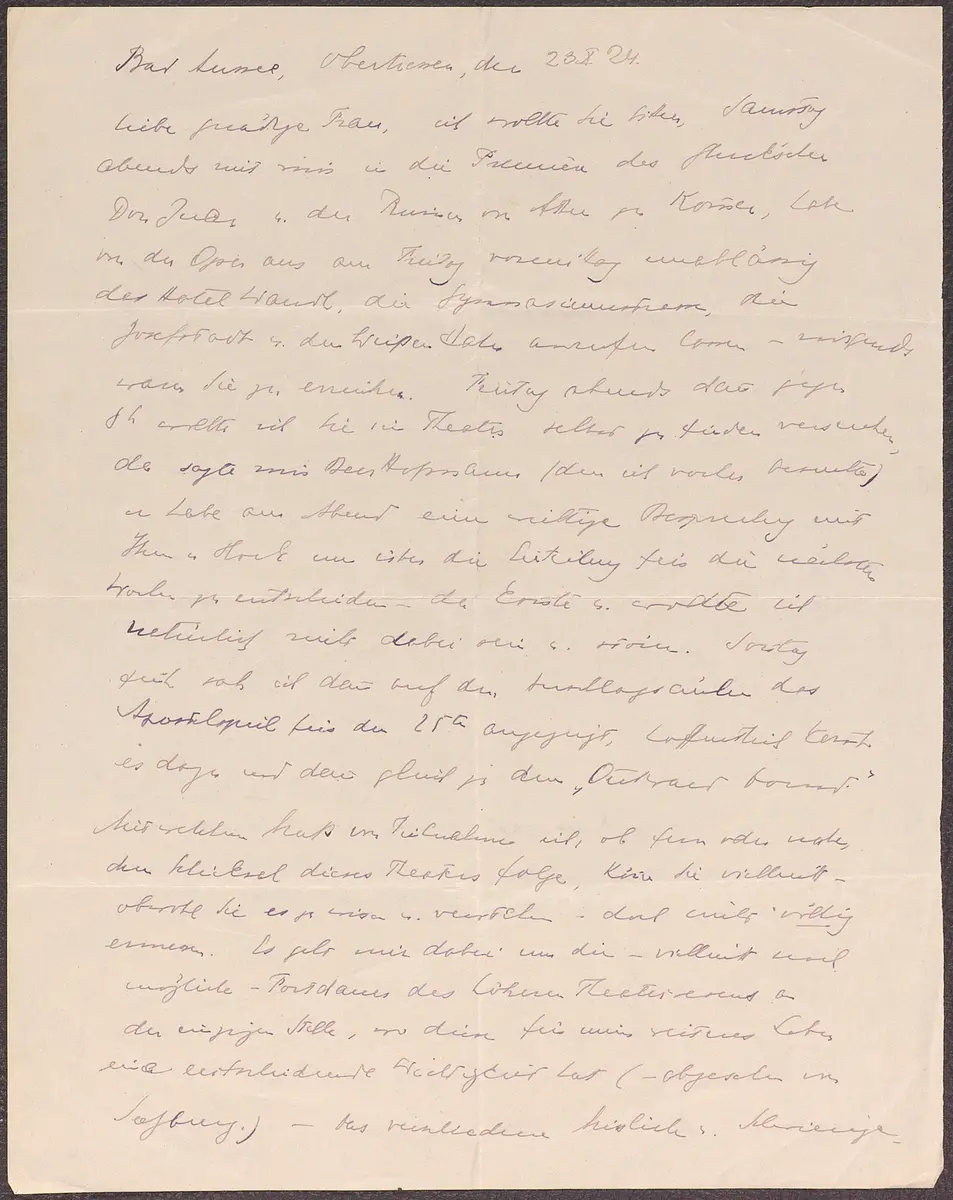 Bad Aussee, Obertressen, den 23 X 24.
Liebe gnädige Frau, ich wollte Sie bitten, Samstag
abends mit mir in die Premiere des Gluckschen
Don Juan u. der Ruinen von Athen zu kommen, habe
von der Oper aus am Freitag vormittag unablässig
das Hotel Wandl, die Gymnasiumstrasse, die
Josefstadt u. den Weißen Hahn anrufen lassen – nirgends
waren Sie zu erreichen. Freitag abends dann gegen
8h wollte ich Sie im Theater selber zu finden versuchen,
da sagte mir Beer Hofmann (den ich vorher besuchte)
er habe am Abend eine wichtige Besprechung mit
Ihnen u. Hock um über die Einteilung für die nächsten
Wochen zu entscheiden – da konnte u. wollte ich
natürlich nicht dabei sein u. stören. Sonntag
früh sah ich dann auf den Anschlagsäulen das
Apostelspiel für den 25ten angezeigt, hoffentlich kommt
es dazu und dann gleich zu dem „Outward bound."
Mit welchem Maß von Teilnahme ich, ob fern oder nahe,
dem Schicksal dieses Theaters folge, können Sie vielleicht –
obwohl Sie es ja wissen u. verstehen – doch nicht völlig
ermessen. Es geht mir dabei um die – vielleicht noch
mögliche – Fortdauer des höheren Theaterwesens an
der einzigen Stelle, wo diese für mein weiteres Leben
eine entscheidende Wichtigkeit hat (– abgesehen von
Salzburg.) – Das verschiedene Missliche u. Schwierige